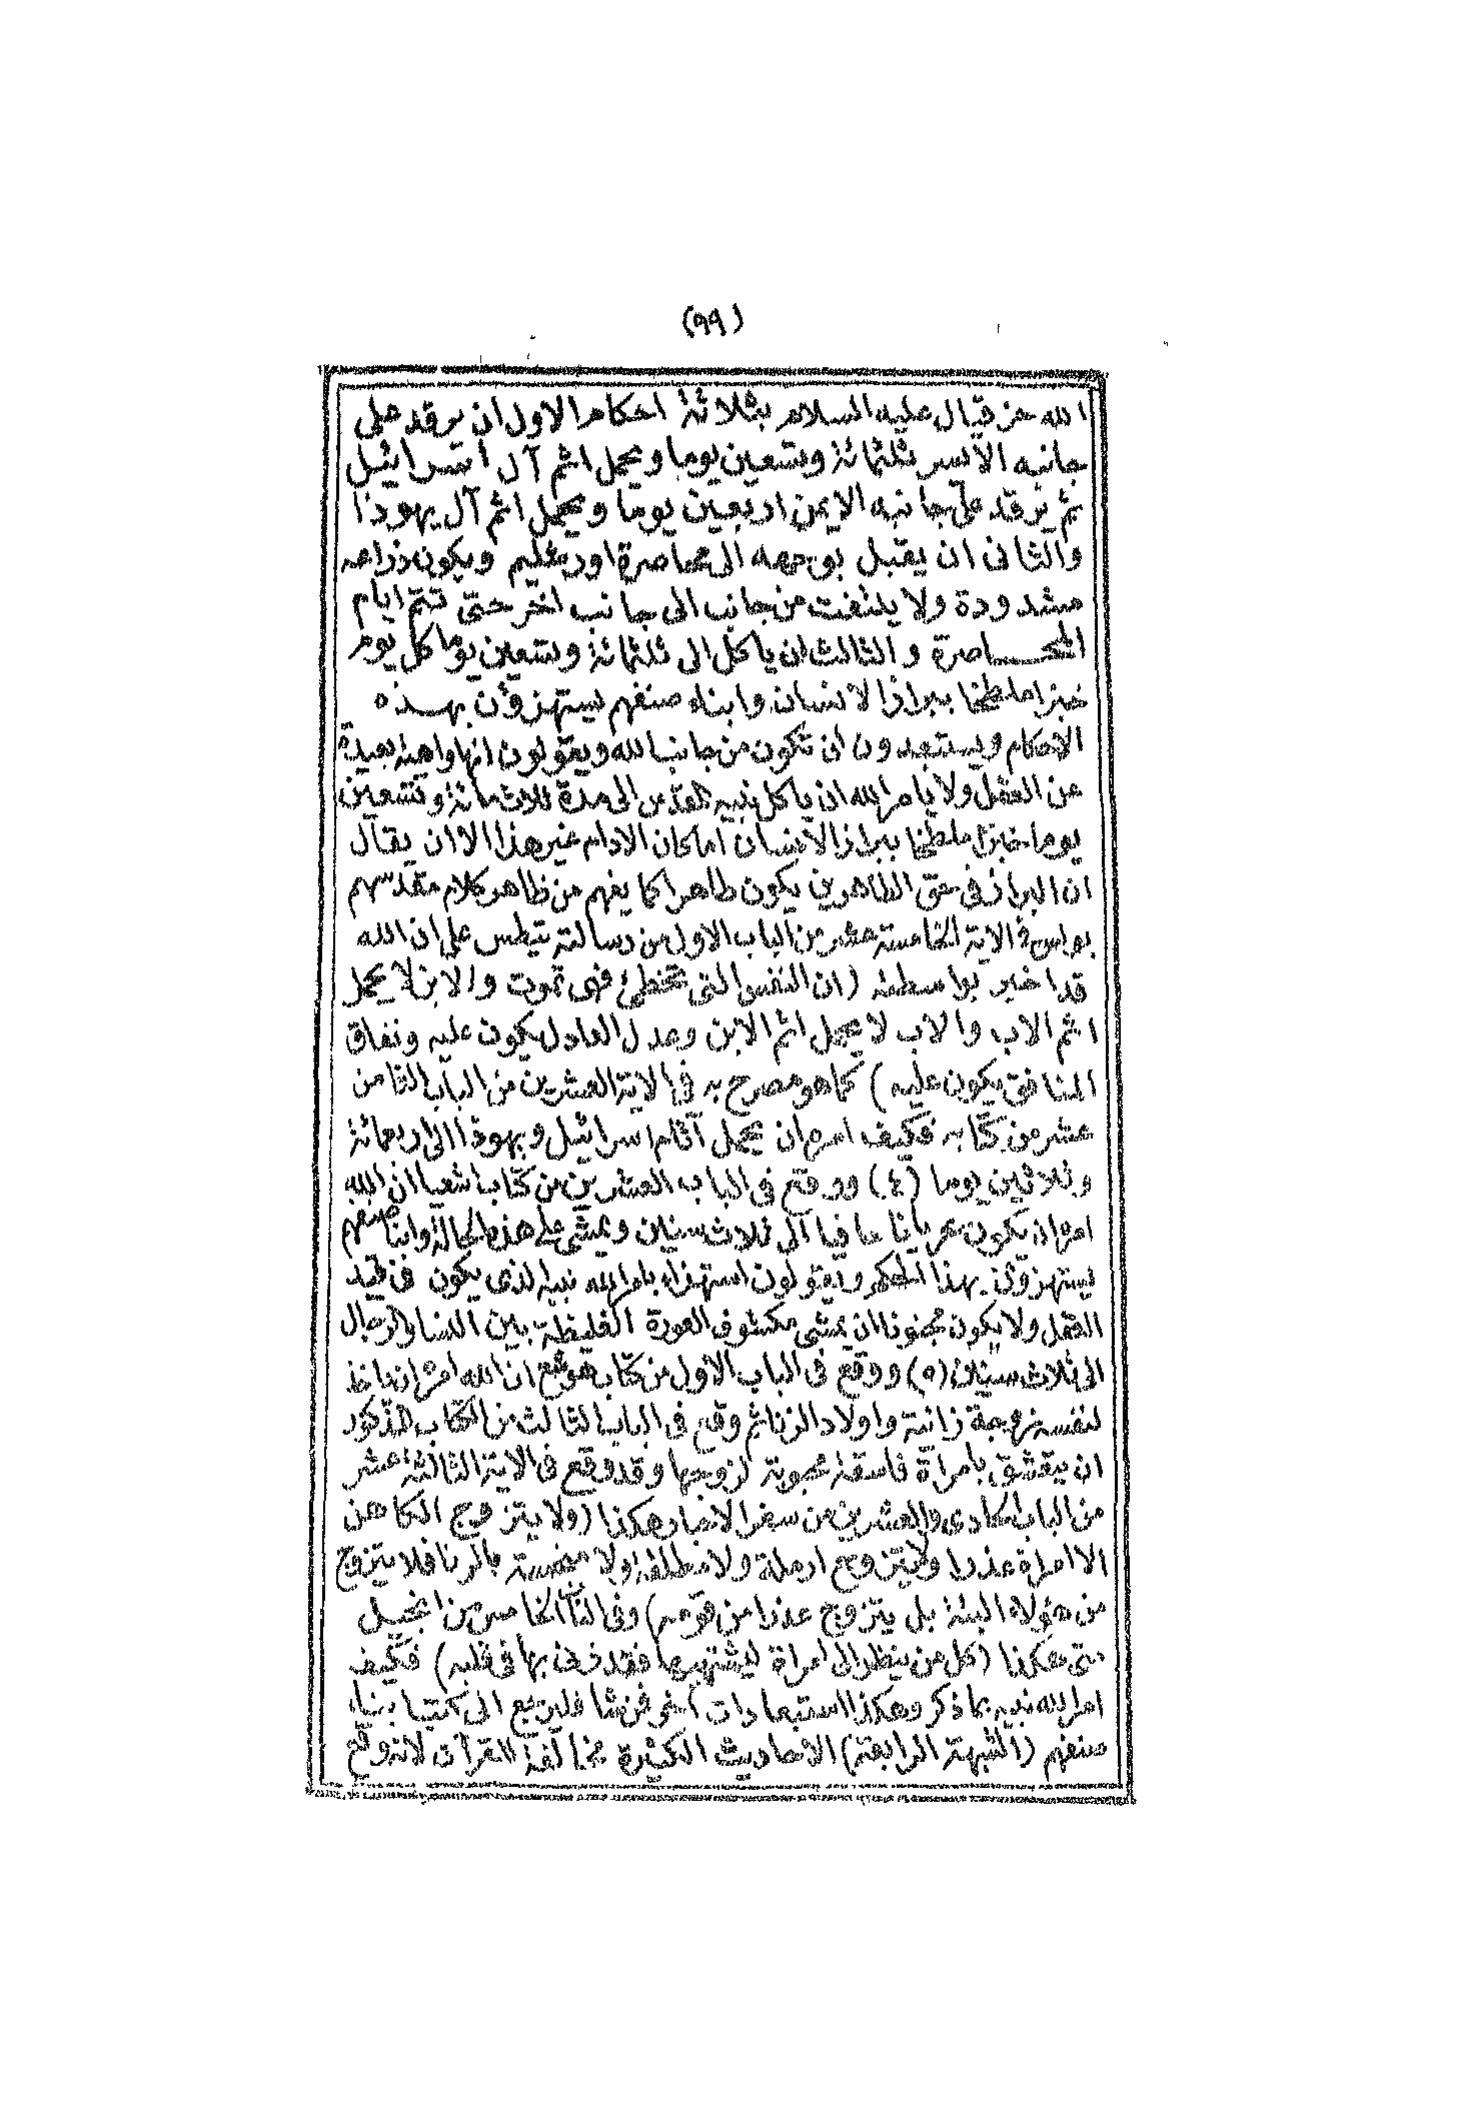 (٩٩)
الله حزقيال عليه السلام بثلاثة احكام الاول ان يرقد على
جانبه الايسر ثلثمائة وتسعين يوما ويحمل اثم آل اسرائيل
ثم يرقد على جانبه الايمن اربعين يوما ويحمل اثم آل يهوذا
والثانى ان يقبل بوجهه الى محاصرة اورشليم ويكون ذراعه
مشدودة ولا يلتفت من جانب الى جانب اخر حتى تتم ايام
المحاصرة والثالث ان ياكل الى ثلثمائة وتسعين يوما كل يوم
خبزا ملطخا ببراز الانسان وابناء صنفهم يستهزؤن بهذه
الاحكام ويستبعدون ان تكون من جانب الله ويقولون انها واهية بعيدة
عن العقل ولا يامر الله ان ياكل نبيه المقدس الى مدة ثلاث مائة وتسعين
يوما خبزا ملطخا ببراز الانسان اما كان الادام غير هذا الا ان يقال
ان البراز فى حق الطاهرين يكون طاهرا كما يفهم من ظاهر كلام مقدسهم
بولس فى الاية الخامسة عشر من الباب الاول من رسالته تيطس على ان الله
قد اخبر بواسطته (ان النفس التى تخطئ فهى تموت والابن لا يحمل
اثم الاب والاب لا يحمل اثم الابن وعدل العادل يكون عليه ونفاق
المنافق يكون عليه) كما هو مصرح به فى الاية العشرين من الباب الثامن
عشر من كتابه فكيف امره ان يحمل آثام اسرائيل ويهوذا الى اربعمائة
وثلاثين يوما (٤) ووقع فى الباب العشرين من كتاب اشعيا ان الله
امره ان يكون عريانا حافيا الى ثلاث سنين ويمشى على هذه الحالة وابنا صنفهم
يستهزؤن بهذا الحكم ويقولون استهزاء بامر الله نبيه الذى يكون فى قيد
العقل ولا يكون مجنونا ان يمشى مكشوف العورة الغليظة بين النسا والرجال
الى ثلاث سنين (٥) ووقع فى الباب الاول من كتاب هوشع ان الله امره ان ياخذ
لنفسه زوجة زانية واولاد الزنا ثم وقع فى الباب الثالث من الكتاب المذكور
ان يتعشق بامراة فاسقة محبوبة لزوجها وقد وقع فى الاية الثالثة عشر
من الباب الحادى والعشرين من سفر الاحبار هكذا (ولا يتزوج الكاهن
الا امراة عذرا ولا يتزوج ارملة ولا مطلقة ولا منجسة بالزنا فلا يتزوج
من هؤلاء البتة بل يتزوج عذرا من قومه) وفى الباب الخامس من انجيل
متى هكذا (كل من ينظر الى امراة ليشتهيها فقد زنى بها فى قلبه) فكيف
امر الله نبيه بما ذكر وهكذا استبعادات اخر فمن شا فليرجع الى كتب ابناء
صنفهم (الشبهة الرابعة) الاحاديث الكثيرة مخالفة للقرآن لانه وقع